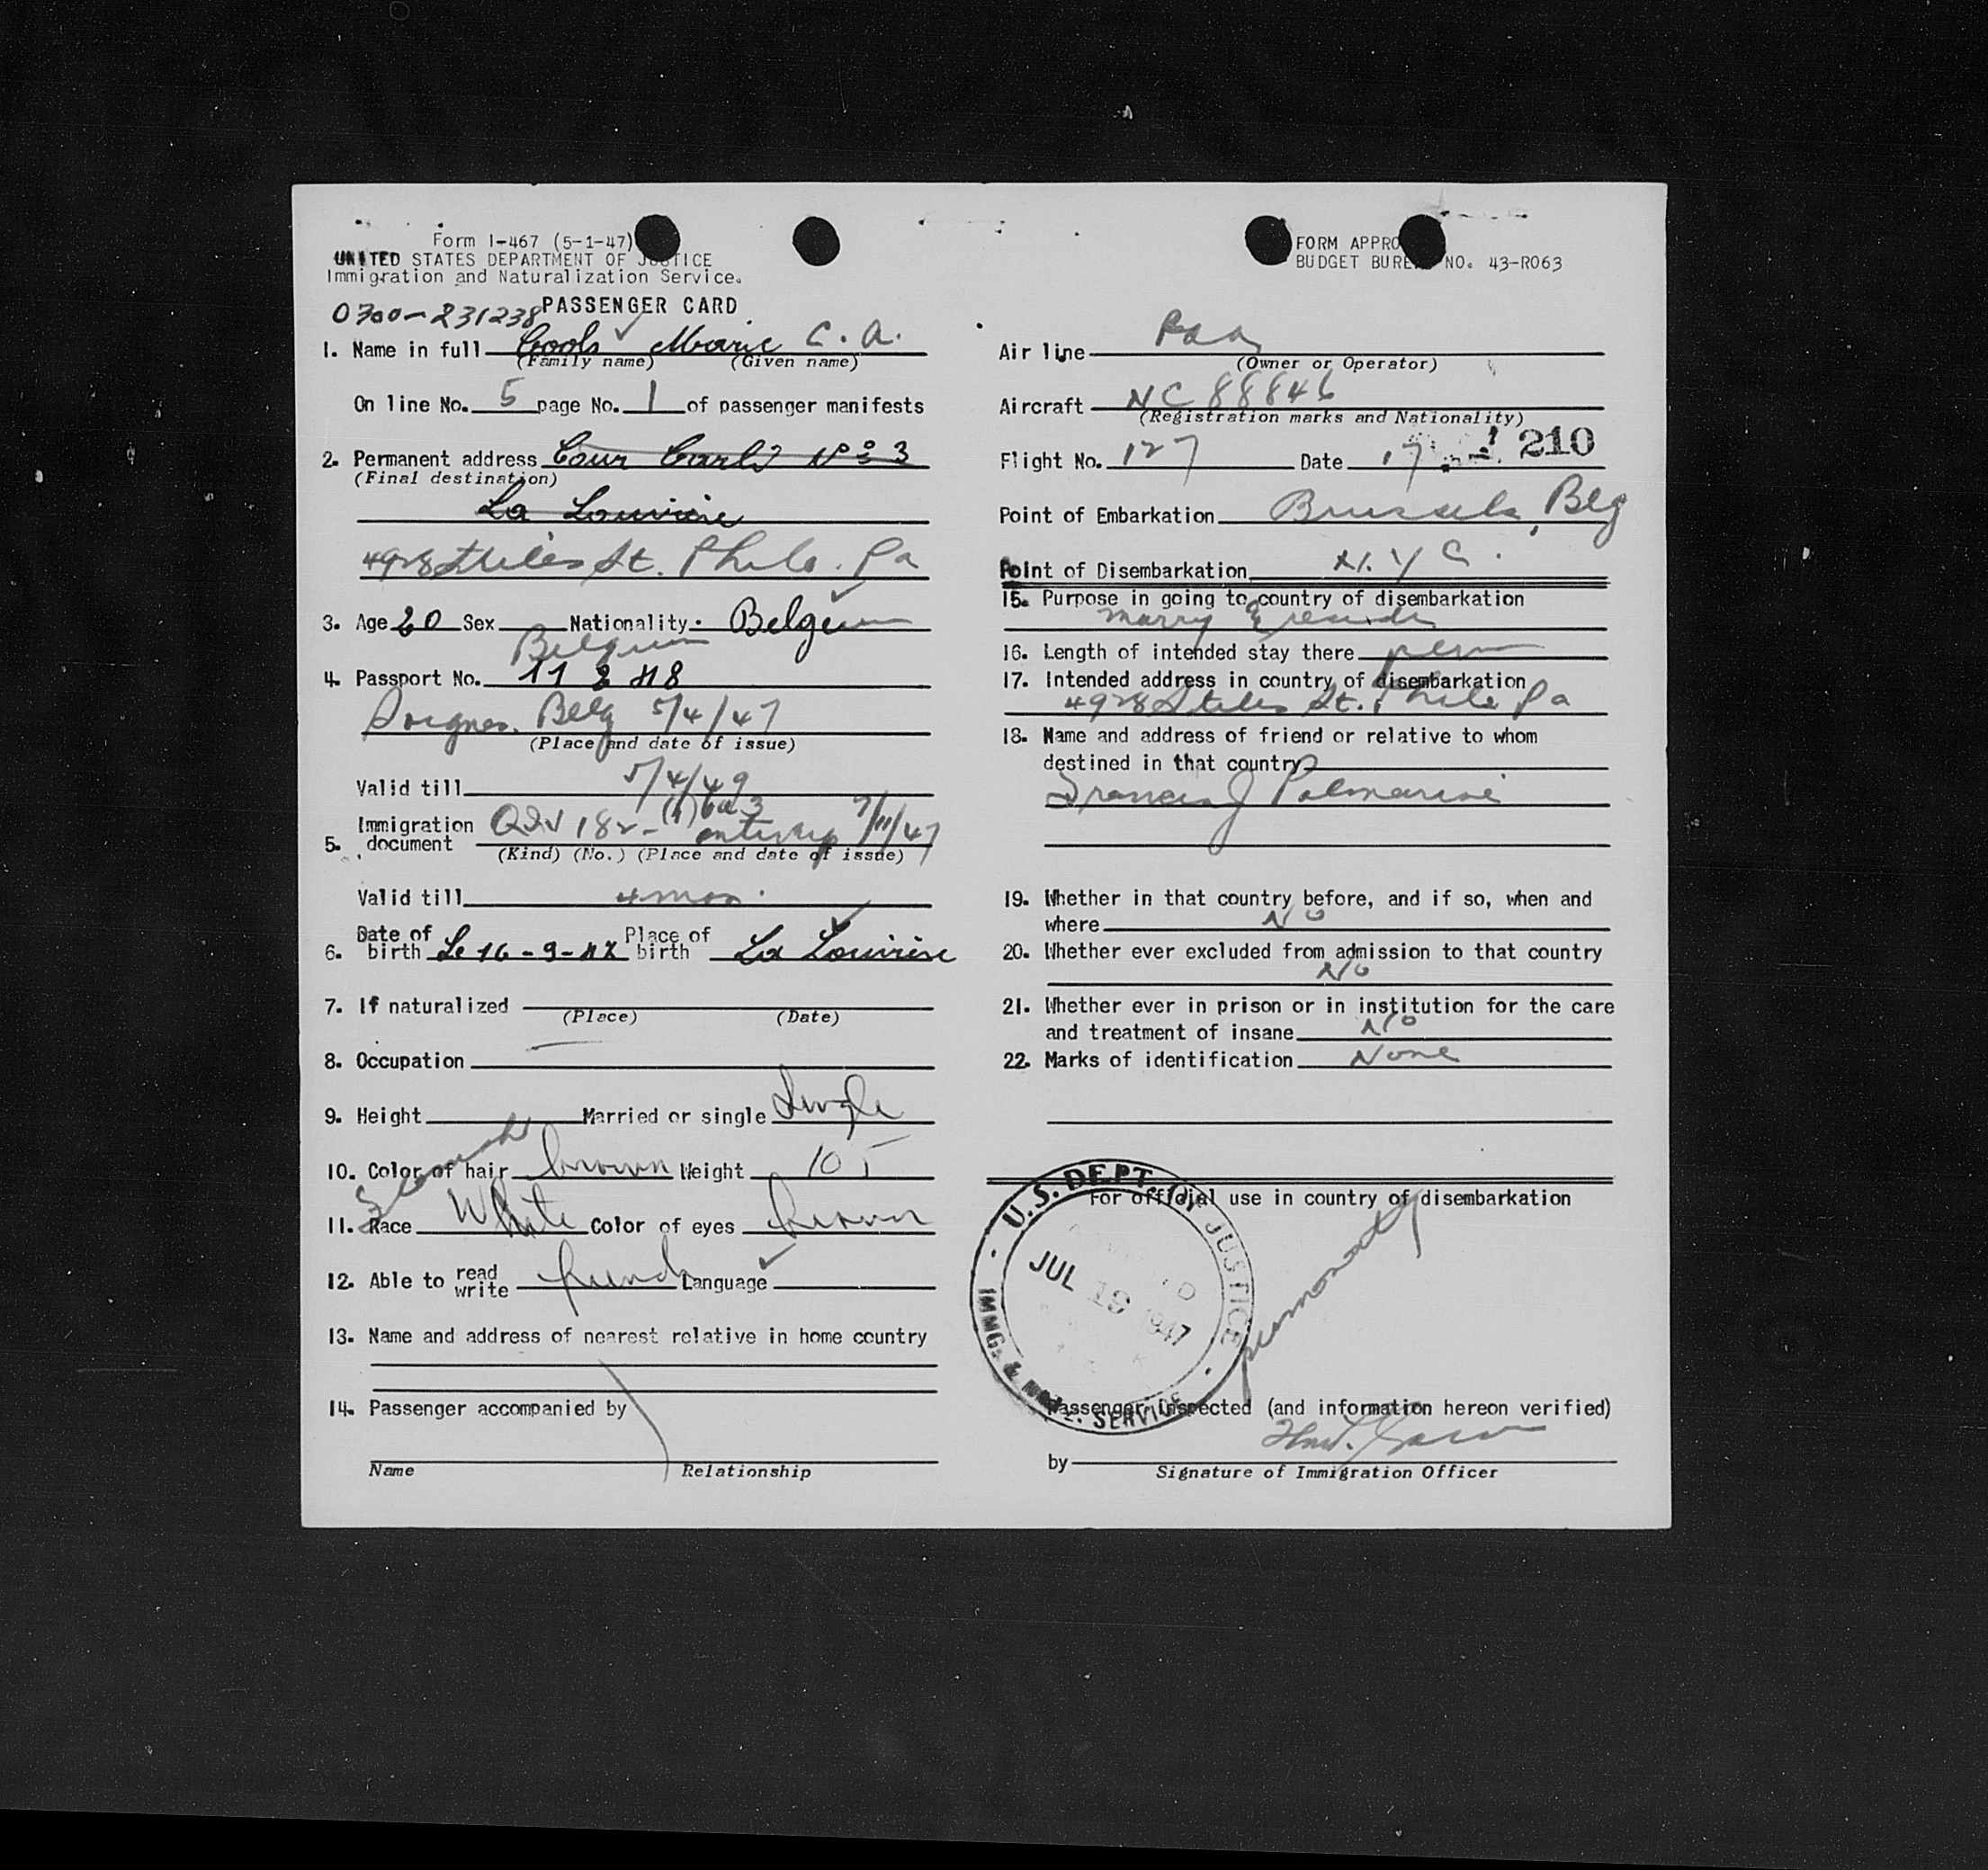 Form I-467 (5-1-47)
UNITED STATES DEPARTMENT OF JUSTICE
Immigration and Naturalization Service.
0300-231238 PASSENGER CARD
1. Name in full Cools Marie C. A.
(Family name) (Given name)
On line No. 5 page No. 1 of passenger manifests
2. Permanent address Cour N° 3
(Final destination)
La Louvière
4928 Stiles St. Phila. Pa
3. Age 20 Sex Nationality. Belgium
Belgium
4. Passport No. 11
Belg 5/4/47
(Place and date of issue)
Valid till 5/4/49
5. Immigration document QIV 182- Antwerp 7/11/47
(Kind) (No.) (Place and date of issue)
Valid till 4 mos.
6. Date of birth Le 16-9- Place of birth La Louvière
7. If naturalized
(Place) (Date)
8. Occupation
9. Height Married or single Single
10. Color of hair brown Weight 105
Flemish
11. Race White Color of eyes brown
12. Able to read write French Language
13. Name and address of nearest relative in home country
14. Passenger accompanied by
Name Relationship
FORM APPRO
BUDGET BUREAU NO. 43-R063
Air line Paa
(Owner or Operator)
Aircraft NC 88846
(Registration marks and Nationality)
Flight No. 127 Date 17 210
Point of Embarkation Brussels, Blg
Point of Disembarkation N.Y.C.
15. Purpose in going to country of disembarkation
marry & reside
16. Length of intended stay there perm
17. Intended address in country of disembarkation
4928 Stiles St. Phila Pa
18. Name and address of friend or relative to whom
destined in that country
Francis J Palmarini
19. Whether in that country before, and if so, when and
where No
20. Whether ever excluded from admission to that country
No
21. Whether ever in prison or in institution for the care
and treatment of insane No
22. Marks of identification None
For official use in country of disembarkation
U.S. DEPT. OF JUSTICE
JUL 19 1947
IMMG. & NATZ. SERVICE
Passenger Inspected (and information hereon verified)
by
Signature of Immigration Officer